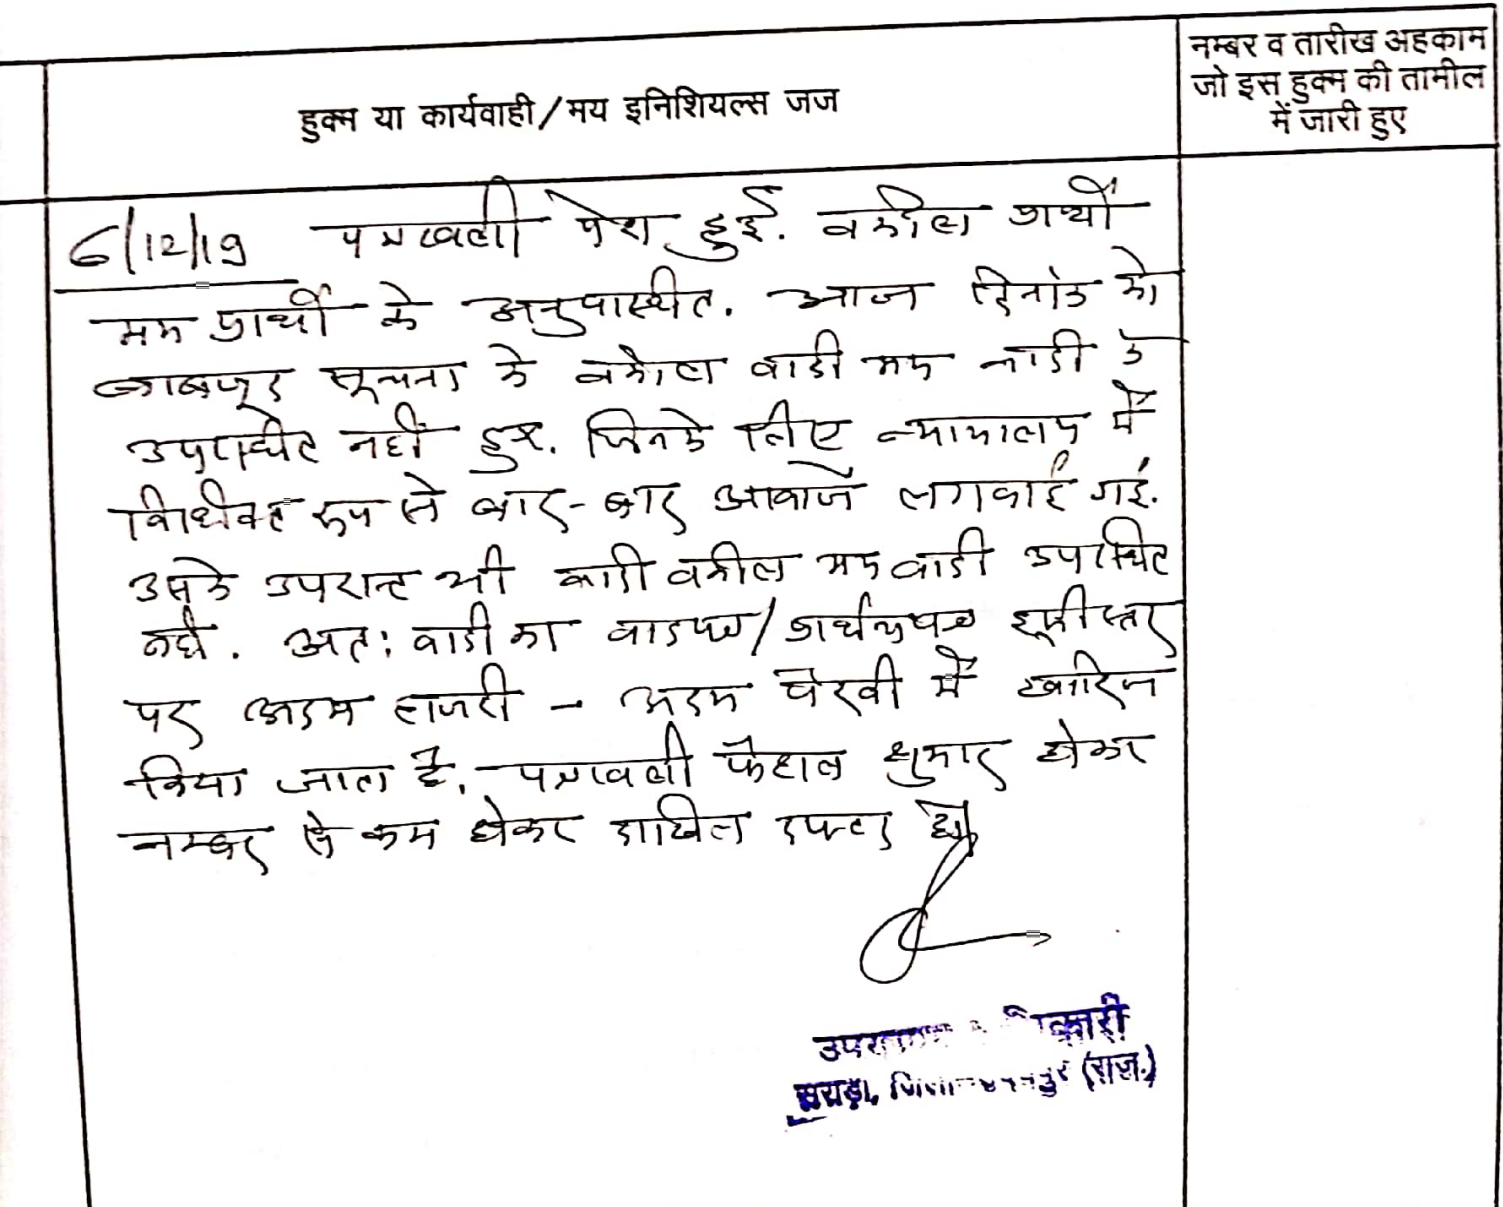 हुक्म या कार्यवाही/मय इनिशियल्स जज
नम्बर व तारीख अहकाम
जो इस हुक्म की तामील
में जारी हुए
6/12/19 पत्रावली पेश हुई. वकील प्रार्थी
मय प्रार्थी के अनुपास्थीत. आज दिनांक को
बावजूद सूचना के वकील वादी मय वादी के
उपस्थित नहीं हुए. जिनके लिए न्यायालय में
विधिवत रूप से बार-बार आवाजें लगवाई गई.
उसके उपरान्त भी वादी वकील मय वादी उपस्थित
नहीं. अत: वादी का वादपत्र/प्रार्थनापत्र इसी स्तर
पर अदम हाजरी - अदम पैरवी में खारिज
किया जाता है. पत्रावली फैसल शुमार होकर
नम्बर से कम होकर दाखिल दफ्तर हो
(राज.)